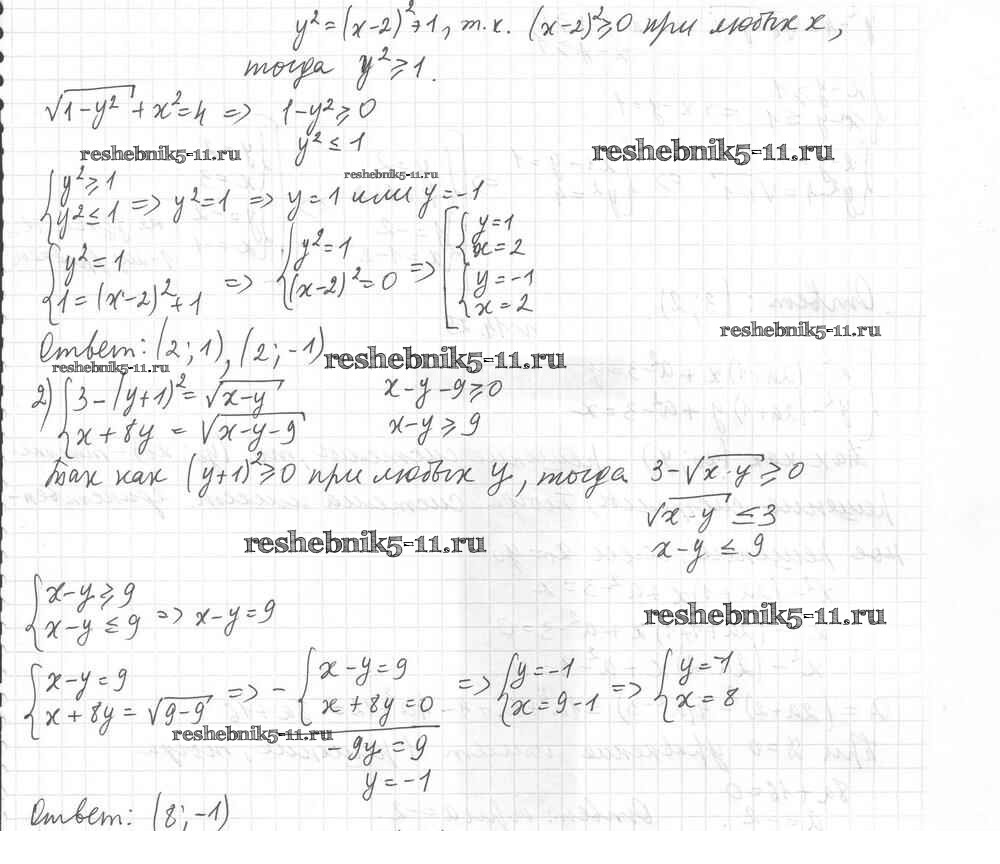 y² = (x-2)² + 1, т.к. (x-2)² ≥ 0 при любых x,
тогда y² ≥ 1.
√(1-y²) + x² = 4 => 1-y² ≥ 0
y² ≤ 1
reshebnik5-11.ru
reshebnik5-11.ru
reshebnik5-11.ru
{ y² ≥ 1
{ y² ≤ 1 => y² = 1 => y = 1 или y = -1
{ y² = 1
{ 1 = (x-2)² + 1 => { y² = 1
{ (x-2)² = 0 => [ { y = 1
{ x = 2
{ y = -1
{ x = 2
reshebnik5-11.ru
Ответ: (2; 1), (2; -1)
reshebnik5-11.ru
reshebnik5-11.ru
2) { 3 - (y+1)² = √(x-y) x-y-9 ≥ 0
{ x + 8y = √(x-y-9) x-y ≥ 9
Так как (y+1)² ≥ 0 при любых y, тогда 3 - √(x-y) ≥ 0
√(x-y) ≤ 3
x-y ≤ 9
reshebnik5-11.ru
{ x-y ≥ 9
{ x-y ≤ 9 => x-y = 9
reshebnik5-11.ru
{ x-y = 9
{ x + 8y = √(9-9) => - { x-y = 9
{ x + 8y = 0 => { y = -1
{ x = 9-1 => { y = -1
{ x = 8
reshebnik5-11.ru
-9y = 9
y = -1
Ответ: (8; -1)